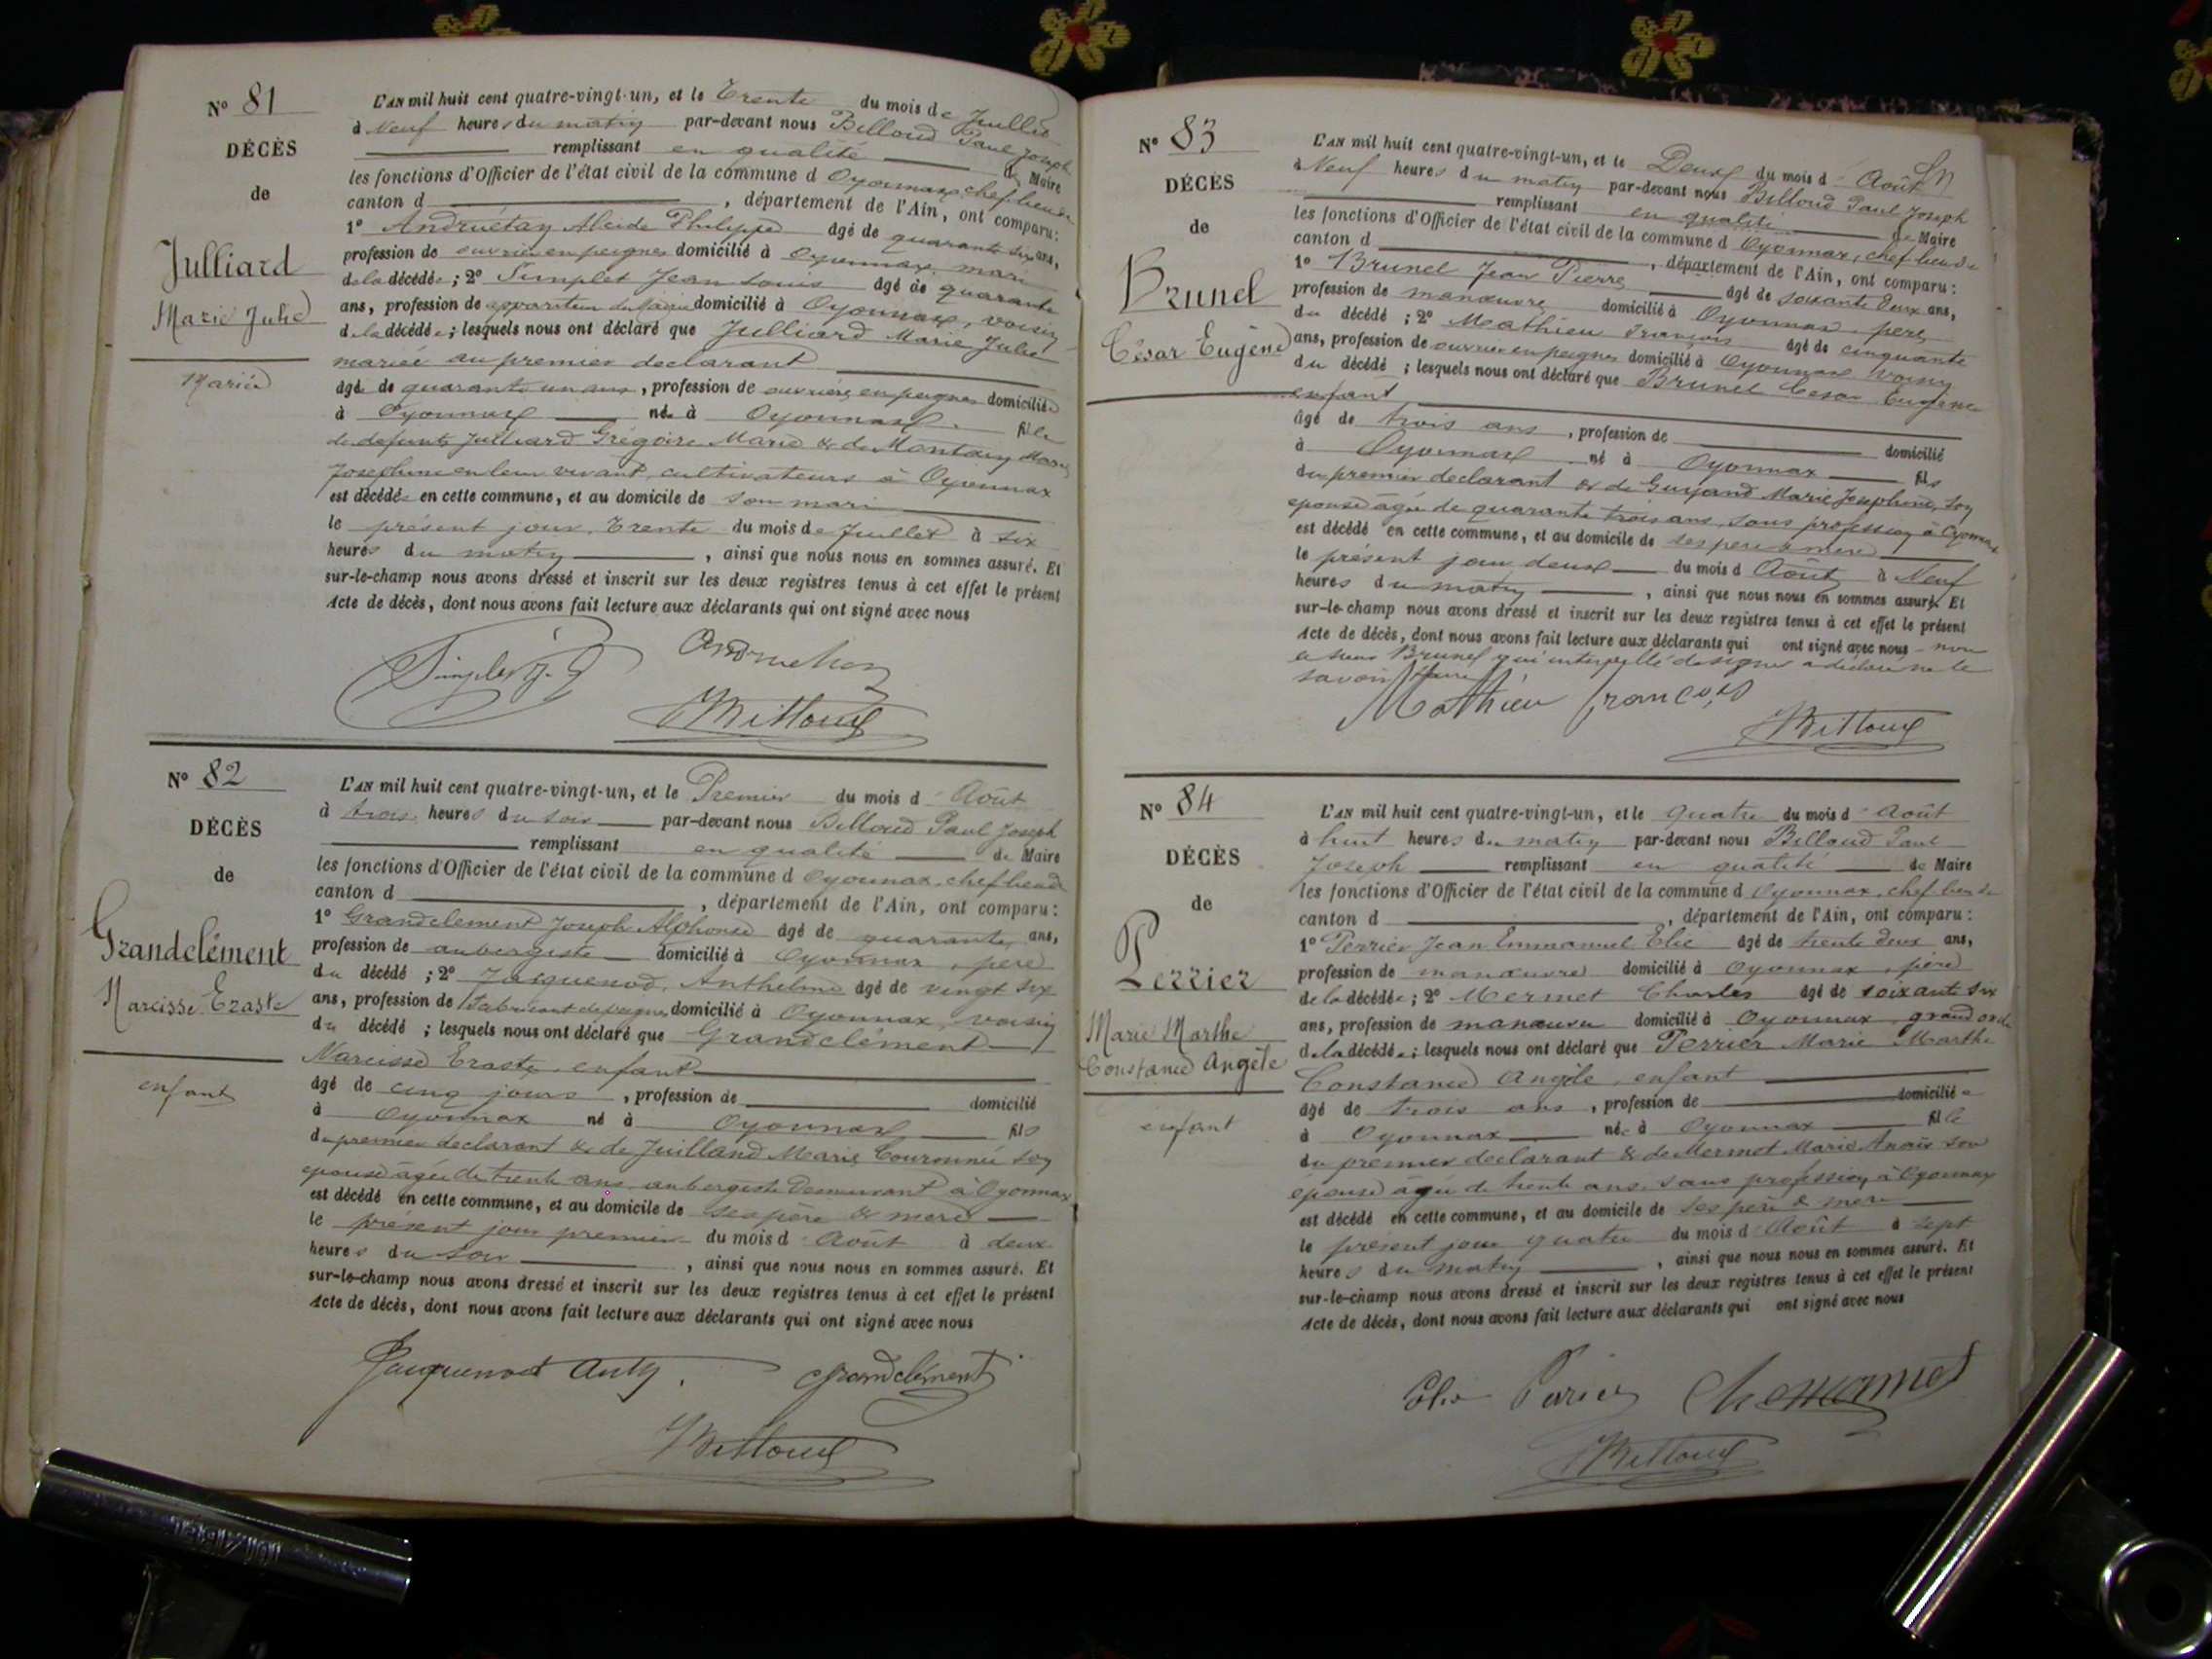 N° 81
DÉCÈS
de
Julliard
Marie Julie
Mariée
L'AN mil huit cent quatre-vingt-un, et le Trente du mois de Juillet
à Neuf heures du matin par-devant nous Billoud Paul Joseph
remplissant en qualité de Maire
les fonctions d'Officier de l'état civil de la commune d Oyonnax, chef lieu de
canton d , département de l'Ain, ont comparu:
1° Andruétan Alcide Philippe âgé de quarante six ans,
profession de ouvrier en peignes domicilié à Oyonnax, mari
de la décédée; 2° Simplet Jean Louis âgé de quarante
ans, profession de appariteur domicilié à Oyonnax, voisin
de la décédée; lesquels nous ont déclaré que Julliard Marie Julie
mariée au premier déclarant
âgée de quarante un ans, profession de ouvrière en peignes domiciliée
à Oyonnax née à Oyonnax fille
de défunts Julliard Grégoire Marie & de Montany Marie
Josephine en leur vivant, cultivateurs à Oyonnax
est décédée en cette commune, et au domicile de son mari
le présent jour, Trente du mois de Juillet à six
heures du matin , ainsi que nous nous en sommes assuré. Et
sur-le-champ nous avons dressé et inscrit sur les deux registres tenus à cet effet le présent
Acte de décès, dont nous avons fait lecture aux déclarants qui ont signé avec nous
Simplet J. L.
Billoud
N° 82
DÉCÈS
de
Grandclément
Narcisse Eraste
enfant
L'AN mil huit cent quatre-vingt-un, et le Premier du mois d'Août
à trois heures du soir par-devant nous Billoud Paul Joseph
remplissant en qualité de Maire
les fonctions d'Officier de l'état civil de la commune d Oyonnax, chef lieu de
canton d , département de l'Ain, ont comparu:
1° Grandclement Joseph Alphonse âgé de quarante ans,
profession de aubergiste domicilié à Oyonnax, père
du décédé; 2° Jacquenod, Anthelme âgé de vingt six
ans, profession de fabricant de peignes domicilié à Oyonnax, voisin
du décédé; lesquels nous ont déclaré que Grandclément
Narcisse Eraste, enfant
âgé de cinq jours, profession de domicilié
à Oyonnax né à Oyonnax fils
du premier déclarant & de Juilland Marie Couronnée son
épouse âgée de trente ans aubergiste Demeurant à Oyonnax
est décédé en cette commune, et au domicile de ses père & mère
le présent jour premier du mois d'Août à deux
heures du soir , ainsi que nous nous en sommes assuré. Et
sur-le-champ nous avons dressé et inscrit sur les deux registres tenus à cet effet le présent
Acte de décès, dont nous avons fait lecture aux déclarants qui ont signé avec nous
Jacquenod Anth. Grandclément
Billoud
N° 83
DÉCÈS
de
Brunel
César Eugène
L'AN mil huit cent quatre-vingt-un, et le Deux du mois d'Août
à Neuf heures du matin par-devant nous Billoud Paul Joseph
remplissant en qualité de Maire
les fonctions d'Officier de l'état civil de la commune d Oyonnax, chef lieu de
canton d , département de l'Ain, ont comparu:
1° Brunel Jean Pierre âgé de soixante deux ans,
profession de manœuvre domicilié à Oyonnax père
du décédé; 2° Mathieu François âgé de cinquante
ans, profession de ouvrier en peignes domicilié à Oyonnax voisin
du décédé; lesquels nous ont déclaré que Brunel César Eugène
enfant
âgé de trois ans, profession de domicilié
à Oyonnax né à Oyonnax fils
du premier déclarant & de Guyand Marie Josephine, son
épouse âgée de quarante trois ans, sans profession à Oyonnax
est décédé en cette commune, et au domicile de ses père & mère
le présent jour deux du mois d Août à Neuf
heures du matin , ainsi que nous nous en sommes assuré. Et
sur-le-champ nous avons dressé et inscrit sur les deux registres tenus à cet effet le présent
Acte de décès, dont nous avons fait lecture aux déclarants qui ont signé avec nous non
le sieur Brunel qui interpellé de signer a déclaré ne le
savoir faire
Mathieu françois
Billoud
N° 84
DÉCÈS
de
Perrier
Marie Marthe
Constance Angèle
enfant
L'AN mil huit cent quatre-vingt-un, et le quatre du mois d'Août
à huit heures du matin par-devant nous Billoud Paul
Joseph remplissant en qualité de Maire
les fonctions d'Officier de l'état civil de la commune d Oyonnax, chef lieu de
canton d , département de l'Ain, ont comparu:
1° Perrier Jean Emmanuel Elie âgé de trente deux ans,
profession de manœuvre domicilié à Oyonnax, père
de la décédée; 2° Mermet Charles âgé de soixante six
ans, profession de manœuvre domicilié à Oyonnax, grand oncle
de la décédée; lesquels nous ont déclaré que Perrier Marie Marthe
Constance Angèle, enfant
âgé de trois ans, profession de domiciliée
à Oyonnax née à Oyonnax fille
du premier déclarant & de Mermet Marie Anaïs son
épouse âgée de trente ans, sans profession, à Oyonnax
est décédé en cette commune, et au domicile de ses père & mère
le présent jour quatre du mois d'Août à sept
heures du matin , ainsi que nous nous en sommes assuré. Et
sur-le-champ nous avons dressé et inscrit sur les deux registres tenus à cet effet le présent
Acte de décès, dont nous avons fait lecture aux déclarants qui ont signé avec nous
Elie Perier
Billoud